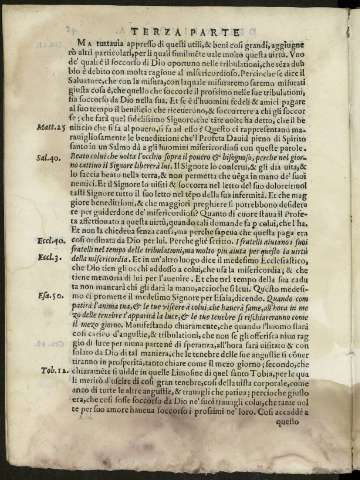 TERZA PARTE
Ma tuttauia appresso di questi vtili, & beni così grandi, aggiugne
rò altri particolari, per li quali similmẽte vale molto questa virtù. Vno
de' quali è il soccorso di Dio oportuno nelle tribulationi, che sẽza dub
bio è debito con molta ragione al misericordioso. Percioche se dice il
Saluatore, che con la misura, con laquale misuraremo saremo misurati
giusta cosa è, che quello che soccorre il prossimo nelle sue tribulationi,
sia soccorso da Dio nella sua. Et se è d'huomini fedeli & amici pagare
al suo tempo il beneficio che riceuerono, & soccorrere a chi gli soccor
se; che farà quel fidelissimo Signore, che tãte volte ha detto, che il be
Matt.25 nificio che si fa al pouero, si fa ad esso? Questo ci rappresentano ma-
rauigliosamente le beneditioni che'l Profeta Dauid pieno di Spirito
santo in vn Salmo dà a gli huomini misericordiosi con queste parole.
Sal.40. Beato colui che volta l'occhio sopra il pouero & bisognoso, perche nel gior-
no cattiuo il Signore liberera lui. Il Signore lo conserui, & gli dia vita, &
lo faccia beato nella terra, & non permetta che vẽga in mano de' suoi
nemici. Et il Signore lo visiti & soccorra nel letto del suo dolore: in tal
tasti Signore tutto il suo letto nel tẽpo della sua infermità. Et che mag
giore beneditioni, & che maggiori preghiere si potrebbono desidera
re per guiderdone de' misericordiosi? Quanto di cuore staua il Profe-
ta affettionato a questa virtù, quando tali domande fa p colui, che l'ha
Et non chiedeua senza causa, ma perche sapeua che questa paga era
Eccl.40. così ordinata da Dio per lui. Perche gliè scritto. I fratelli aiutano i suoi
fratelli nel tempo delle tribulationi, ma molto piu aiuta per questo la virtù
Eccl.3. della misericordia. Et in vn'altro luogo dice il medesimo Ecclesiastico,
che Dio tien gli occhi addosso a colui, che vsa la misericordia; & che
tiene memoria di lui per l'auenire. Et che nel tempo della sua cadu
ta non mancarà chi gli darà la mano, accioche si leui. Questo medesi-
Esa.50. mo ci promette il medesimo Signore per Esaia, dicendo. Quando com
patirà l'anima tua, & le tue viscere à colui che hauerà fame, all'hora in me
zo delle tenebre t'apparirà la luce, & le tue tenebre si rischiareranno come
il mezo giorno. Manifestando chiaramente, che quando l'huomo starà
così carico d'angustie, & tribulationi, che non se gli offerisca niun rag
gio di luce per niuna parte nè di speranza, all'hora sarà visitato & con
solato da Dio di tal maniera, che le tenebre delle sue angustie si cõuer
tiranno in prosperità, tanto chiare come il mezo giorno; secondo, che
Tob.12. chiaramẽte si vidde in quelle Limosine di quel santo Tobia, per le qua
li meritò d'vscire di così gran tenebre, così della vista corporale, come
anco di tutte l'altre angustie, & trauagli che patiua; percioche giusto
era, che così fosse soccorso da Dio ne' suoi trauagli colui, che tante vol
te per suo amore haueua soccorso i prossimi ne' loro. Così accaddè a
questo